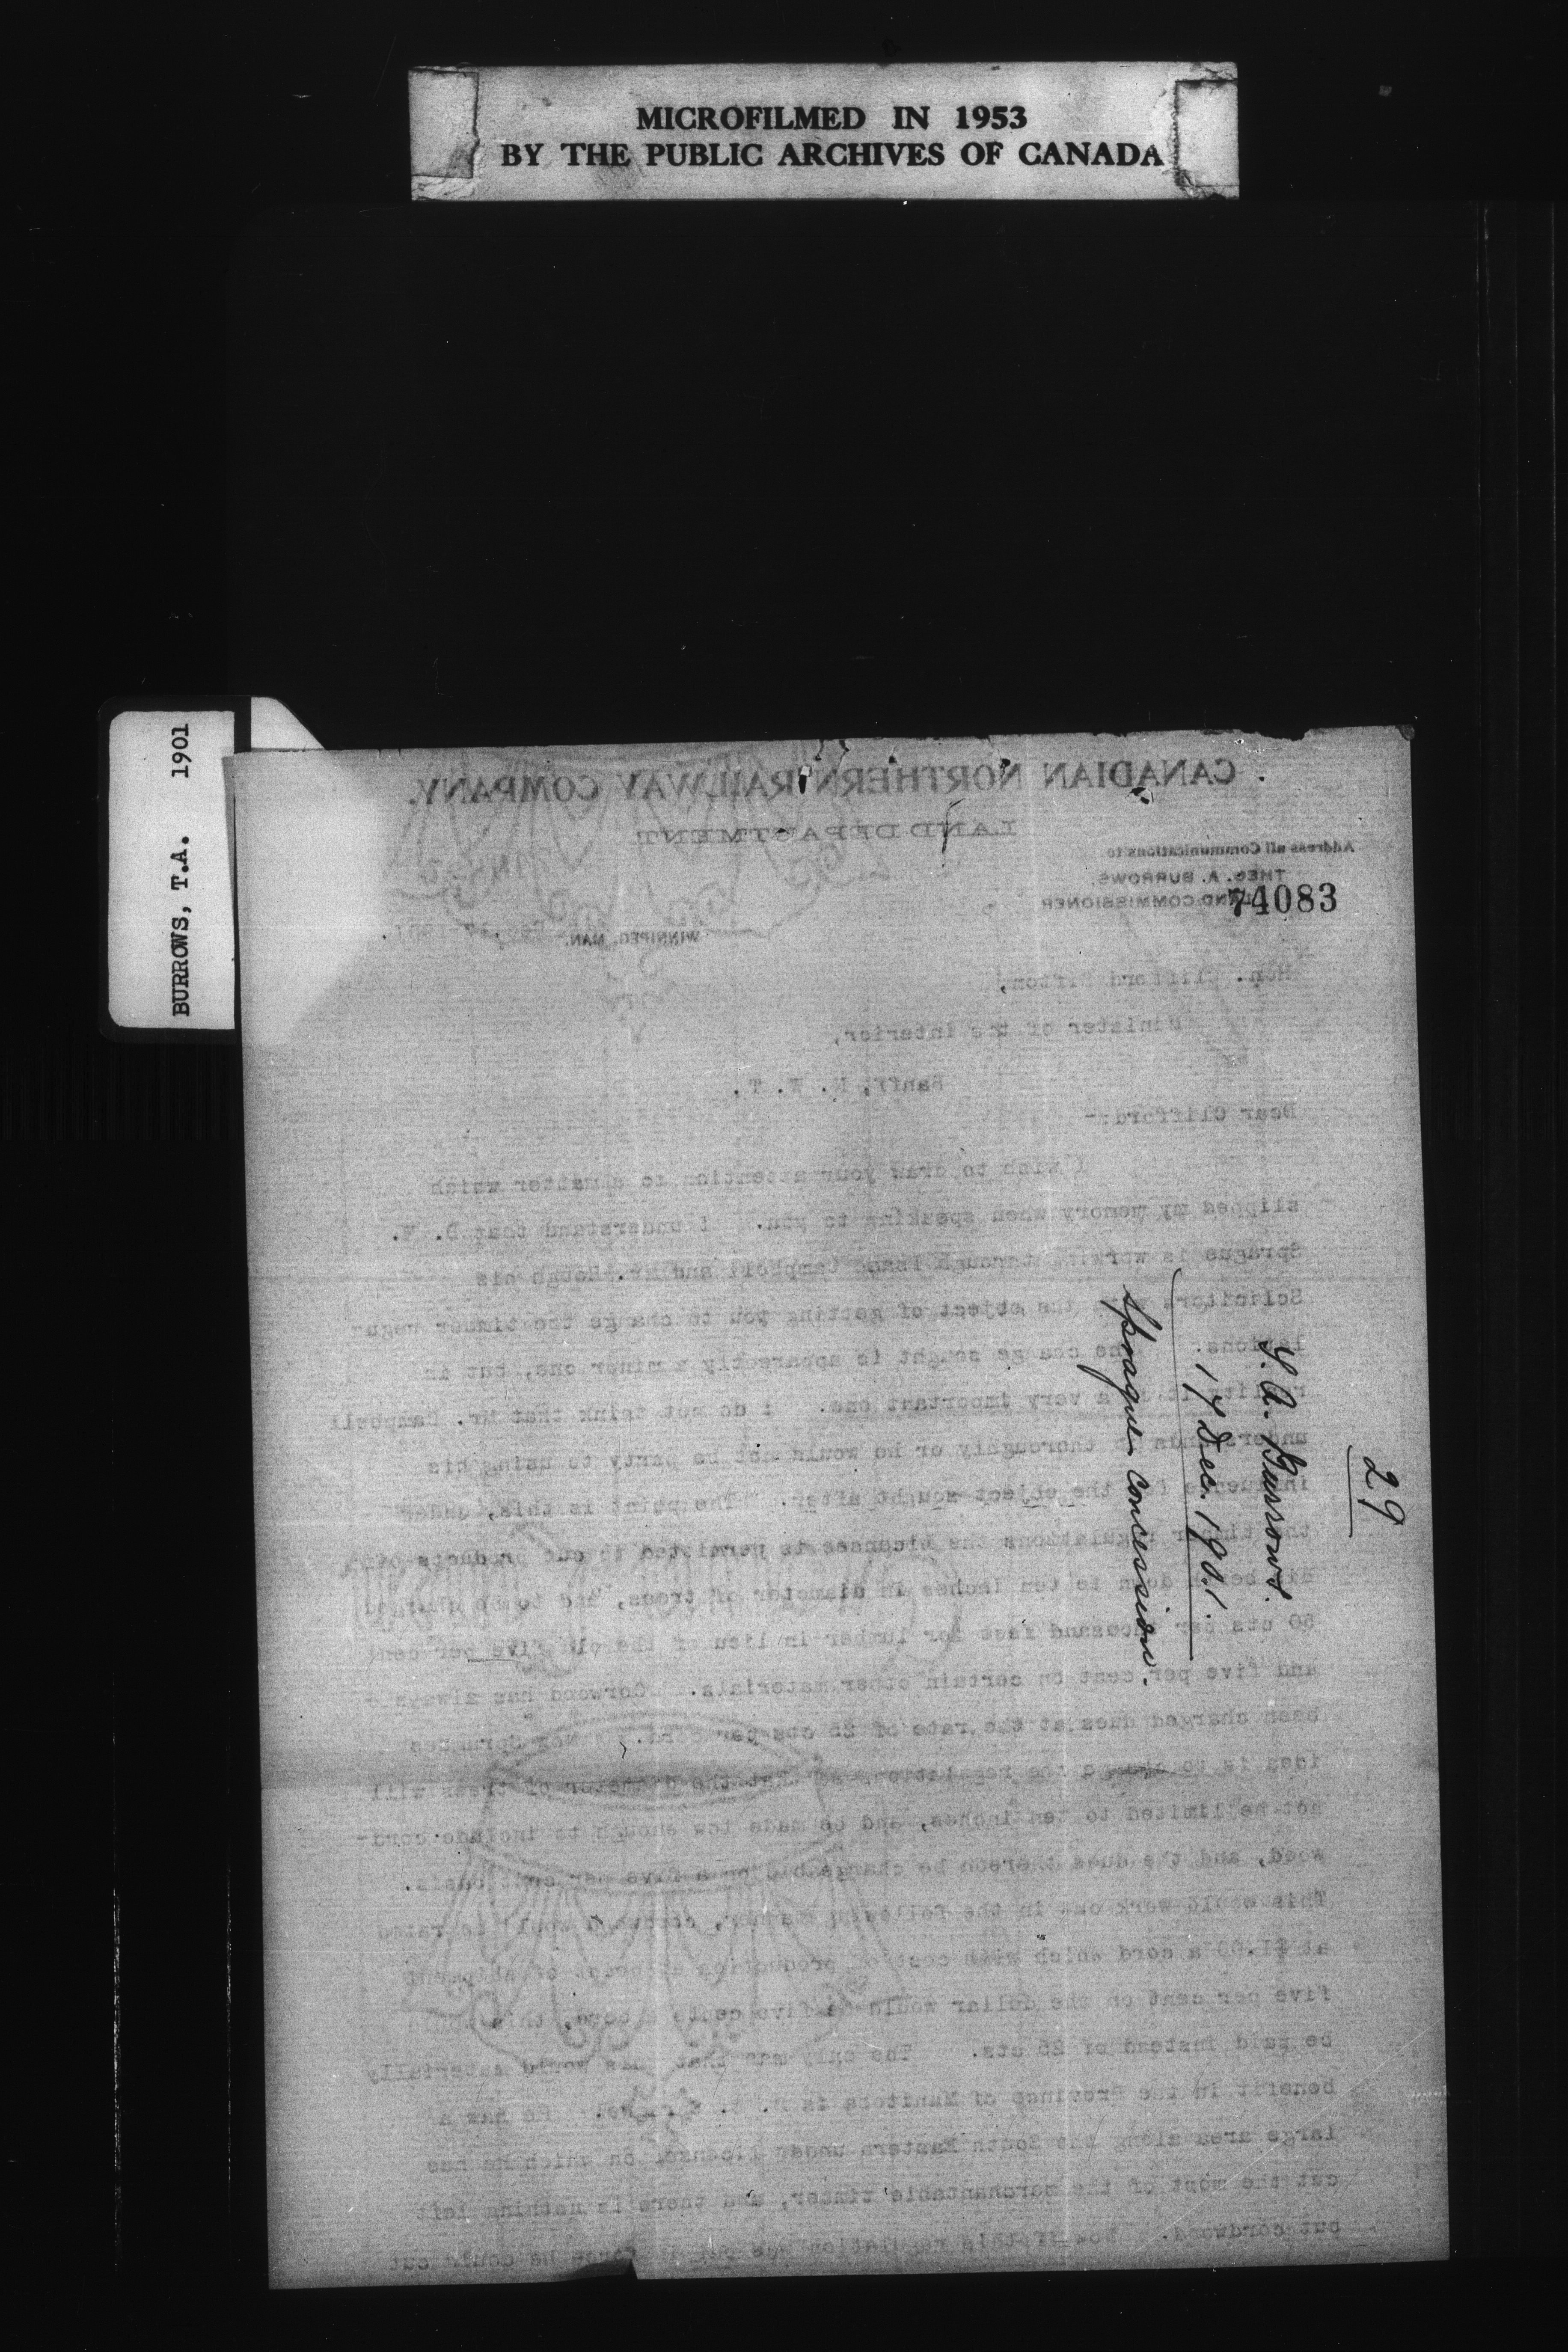 MICROFILMED IN 1953
BY THE PUBLIC ARCHIVES OF CANADA
BURROWS, T.A. 1901
CANADIAN NORTHERN RAILWAY COMPANY.
LAND DEPARTMENT
Address all Communications to
THEO. A. BURROWS,
LAND COMMISSIONER
74083
WINNIPEG, MAN.
Hon. Clifford Sifton,
Minister of the Interior,
Banff, N. W. T.
Dear Clifford:-
I wish to draw your attention to a matter which
slipped my memory when speaking to you. I understand that D. E.
Sprague is working through Isaac Campbell and Mr. Hough his
Solicitors, with the object of getting you to change the timber regu-
lations. The change sought is apparently a minor one, but in
reality it is a very important one. I do not think that Mr. Campbell
understands it thoroughly or he would not be party to using his
influence for the object sought after. The point is this, under
the timber regulations the licensee is permitted to cut products of
down to ten inches in diameter of trees, and to be charged
50 cts per thousand feet for lumber in lieu of the old five per cent
and five per cent on certain other materials. Corwood has always
been charged dues at the rate of 25 cts per cord. Now Spragues
idea is to change the regulations so that the diameter of trees will
not be limited to ten inches, and be made low enough to include cord-
wood, and the dues thereon be chargeable on a five per cent basis.
This would work out in the following manner, cordwood would be rated
at $1.00 a cord which with cost of production at point of shipment
five per cent on the dollar would be five cents a cord, this would
be paid instead of 25 cts. The only man that this would materially
benefit in the Province of Manitoba is D. E. Sprague. He has a
large area along the South Eastern under license on which he has
cut the most of the merchantable timber, and there is nothing left
but cordwood. Now if this regulation was he could cut
29
T. A. Burrows.
17 Dec. 1901.
Sprague concession.